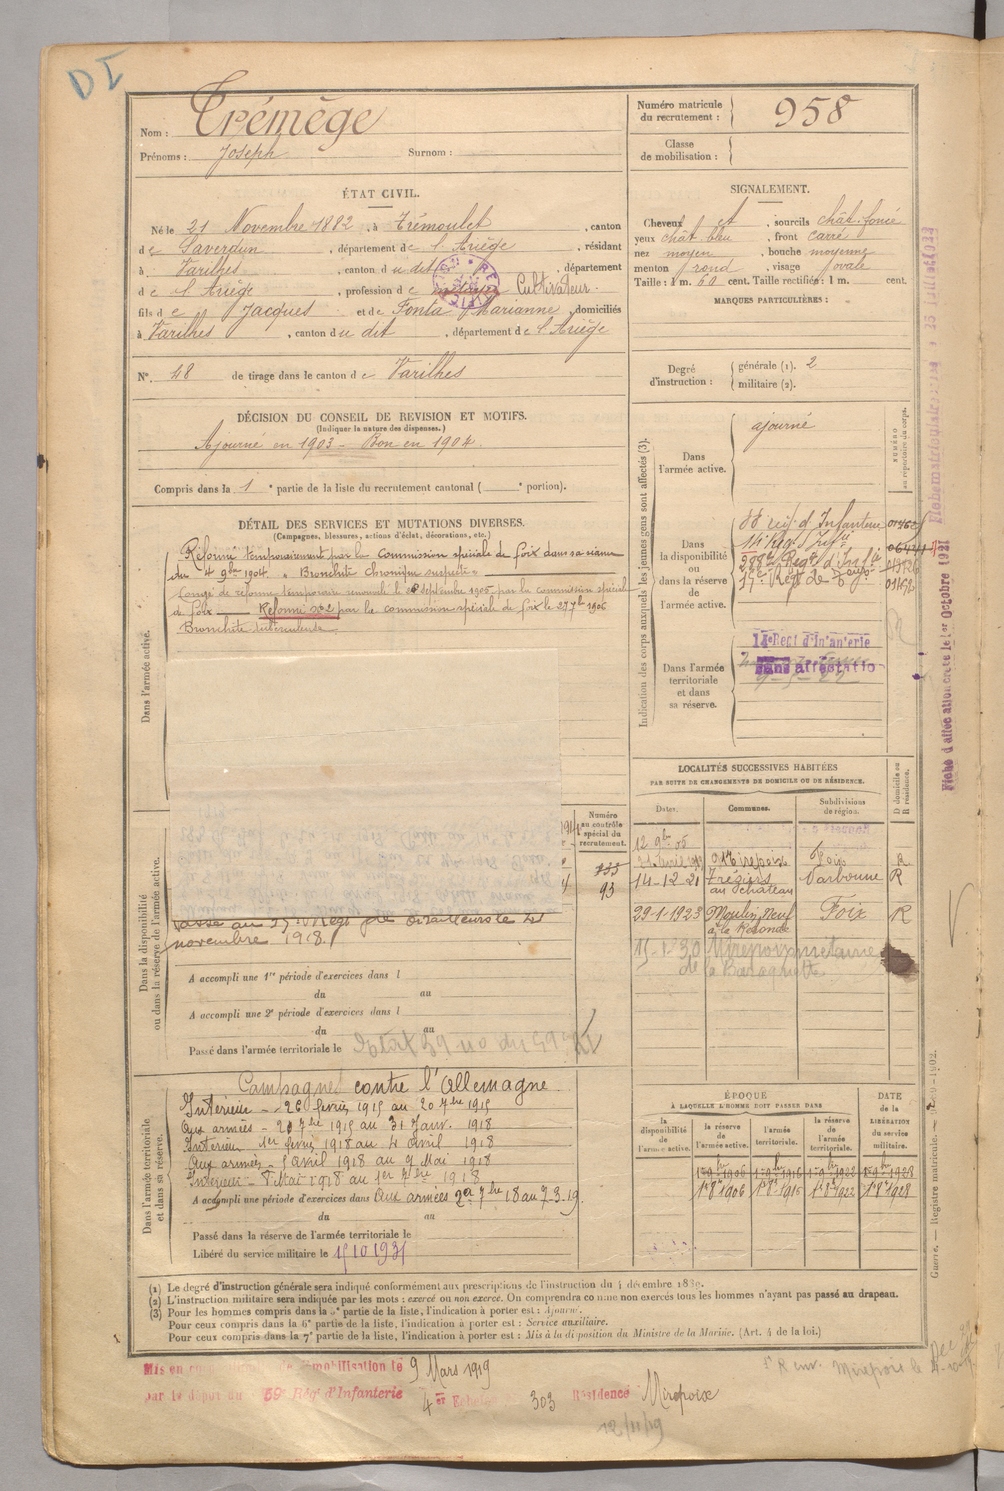 DI
Nom : Trémège
Prénoms : Joseph Surnom :
Numéro matricule du recrutement : 958
Classe de mobilisation :
ÉTAT CIVIL.
Né le 21 Novembre 1882, à Trémoulet, canton
de Saverdun, département de l'Ariège, résidant
à Varilhes, canton du dit, département
de l'Ariège, profession de Cultivateur.
fils de Jacques et de Fonta Marianne, domiciliés
à Varilhes, canton du dit, département de l'Ariège
N° 48 de tirage dans le canton de Varilhes
SIGNALEMENT.
Cheveux et, sourcils chât. foncé
yeux chât bleu, front carré
nez moyen, bouche moyenne
menton rond, visage ovale
Taille : 1 m. 60 cent. Taille rectifiée : 1 m. cent.
MARQUES PARTICULIÈRES :
Degré d'instruction : générale (1). 2
militaire (2).
DÉCISION DU CONSEIL DE REVISION ET MOTIFS.
(Indiquer la nature des dispenses.)
Ajourné en 1903 - Bon en 1904.
Compris dans la 1e partie de la liste du recrutement cantonal ( e portion).
DÉTAIL DES SERVICES ET MUTATIONS DIVERSES.
(Campagnes, blessures, actions d'éclat, décorations, etc.)
Dans l'armée active.
Réformé temporairement par la Commission spéciale de Foix dans sa séance
du 4 9bre 1904. " Bronchite chronique suspecte "
Congé de réforme temporaire renouvelé le septembre 1905 par la commission spéciale
de Foix Réformé n°2 par la commission spéciale de Foix le 29 7bre 1906
Bronchite tuberculeuse
Dans la disponibilité ou dans la réserve de l'armée active.
Numéro au contrôle spécial du recrutement.
93
Passé au Régt de tirailleurs le 21
novembre 1918
A accompli une 1re période d'exercices dans l
du au
A accompli une 2e période d'exercices dans l
du au
Passé dans l'armée territoriale le
Dans l'armée territoriale et dans sa réserve.
Campagne contre l'Allemagne
Intérieur - 26 février 1915 au 20 7bre 1915
Aux armées - 21 7bre 1915 au 31 Janv. 1918
Intérieur 1er février 1918 au 4 avril 1918
Aux armées - 5 avril 1918 au 7 Mai - 1918
Intérieur - 8 Mai 1918 au 1er 7bre 1918
A accompli une période d'exercices dans Aux armées 2 7bre 18 au 7-3-19.
du au
Passé dans la réserve de l'armée territoriale le
Libéré du service militaire le 15 10 1931
Indication des corps auxquels les jeunes gens sont affectés (3).
NUMÉRO au répertoire du corps.
Dans l'armée active.
ajourné
Dans la disponibilité ou dans la réserve de l'armée active.
88 reg. d'Infanterie
14e Regt Infie
288e Regt d'Infie
Dans l'armée territoriale et dans sa réserve.
14e Regt d'Infanterie
Sans affectation
LOCALITÉS SUCCESSIVES HABITÉES
PAR SUITE DE CHANGEMENTS DE DOMICILE OU DE RÉSIDENCE.
Dates. Communes. Subdivisions de région. D domicile ou R résidence.
12 9bre 05
Mirepoix Foix R
14-12-21 Trèziers au Château Narbonne R
29-1-1923 Moulin Neuf à la Rotonde Foix R
15-1-30 Mirepoix métairie
de la Baraquette
ÉPOQUE
À LAQUELLE L'HOMME DOIT PASSER DANS
la disponibilité de l'armée active. la réserve de l'armée active. l'armée territoriale. la réserve de l'armée territoriale. DATE de la LIBÉRATION du service militaire.
1er 9bre 1906 1er 9bre 1916 1er 9bre 1922 1er 9bre 1928
1er 8bre 1906 1er 8bre 1916 1er 8bre 1922 1er 8bre 1928
Fiche d'affectation créée le 1er Octobre 1921
Guerre. — Registre matricule.
(1) Le degré d'instruction générale sera indiqué conformément aux prescriptions de l'instruction du 4 décembre 1889.
(2) L'instruction militaire sera indiquée par les mots : exercé ou non exercé. On comprendra comme non exercés tous les hommes n'ayant pas passé au drapeau.
(3) Pour les hommes compris dans la e partie de la liste, l'indication à porter est : Ajourné.
Pour ceux compris dans la 6e partie de la liste, l'indication à porter est : Service auxiliaire.
Pour ceux compris dans la 7e partie de la liste, l'indication à porter est : Mis à la disposition du Ministre de la Marine. (Art. 4 de la loi.)
Mis en congé de démobilisation le 9 Mars 1919
par le dépôt du 59e Rég d'Infanterie 4er Echelon 303 Résidence Mirepoix
12/11/19